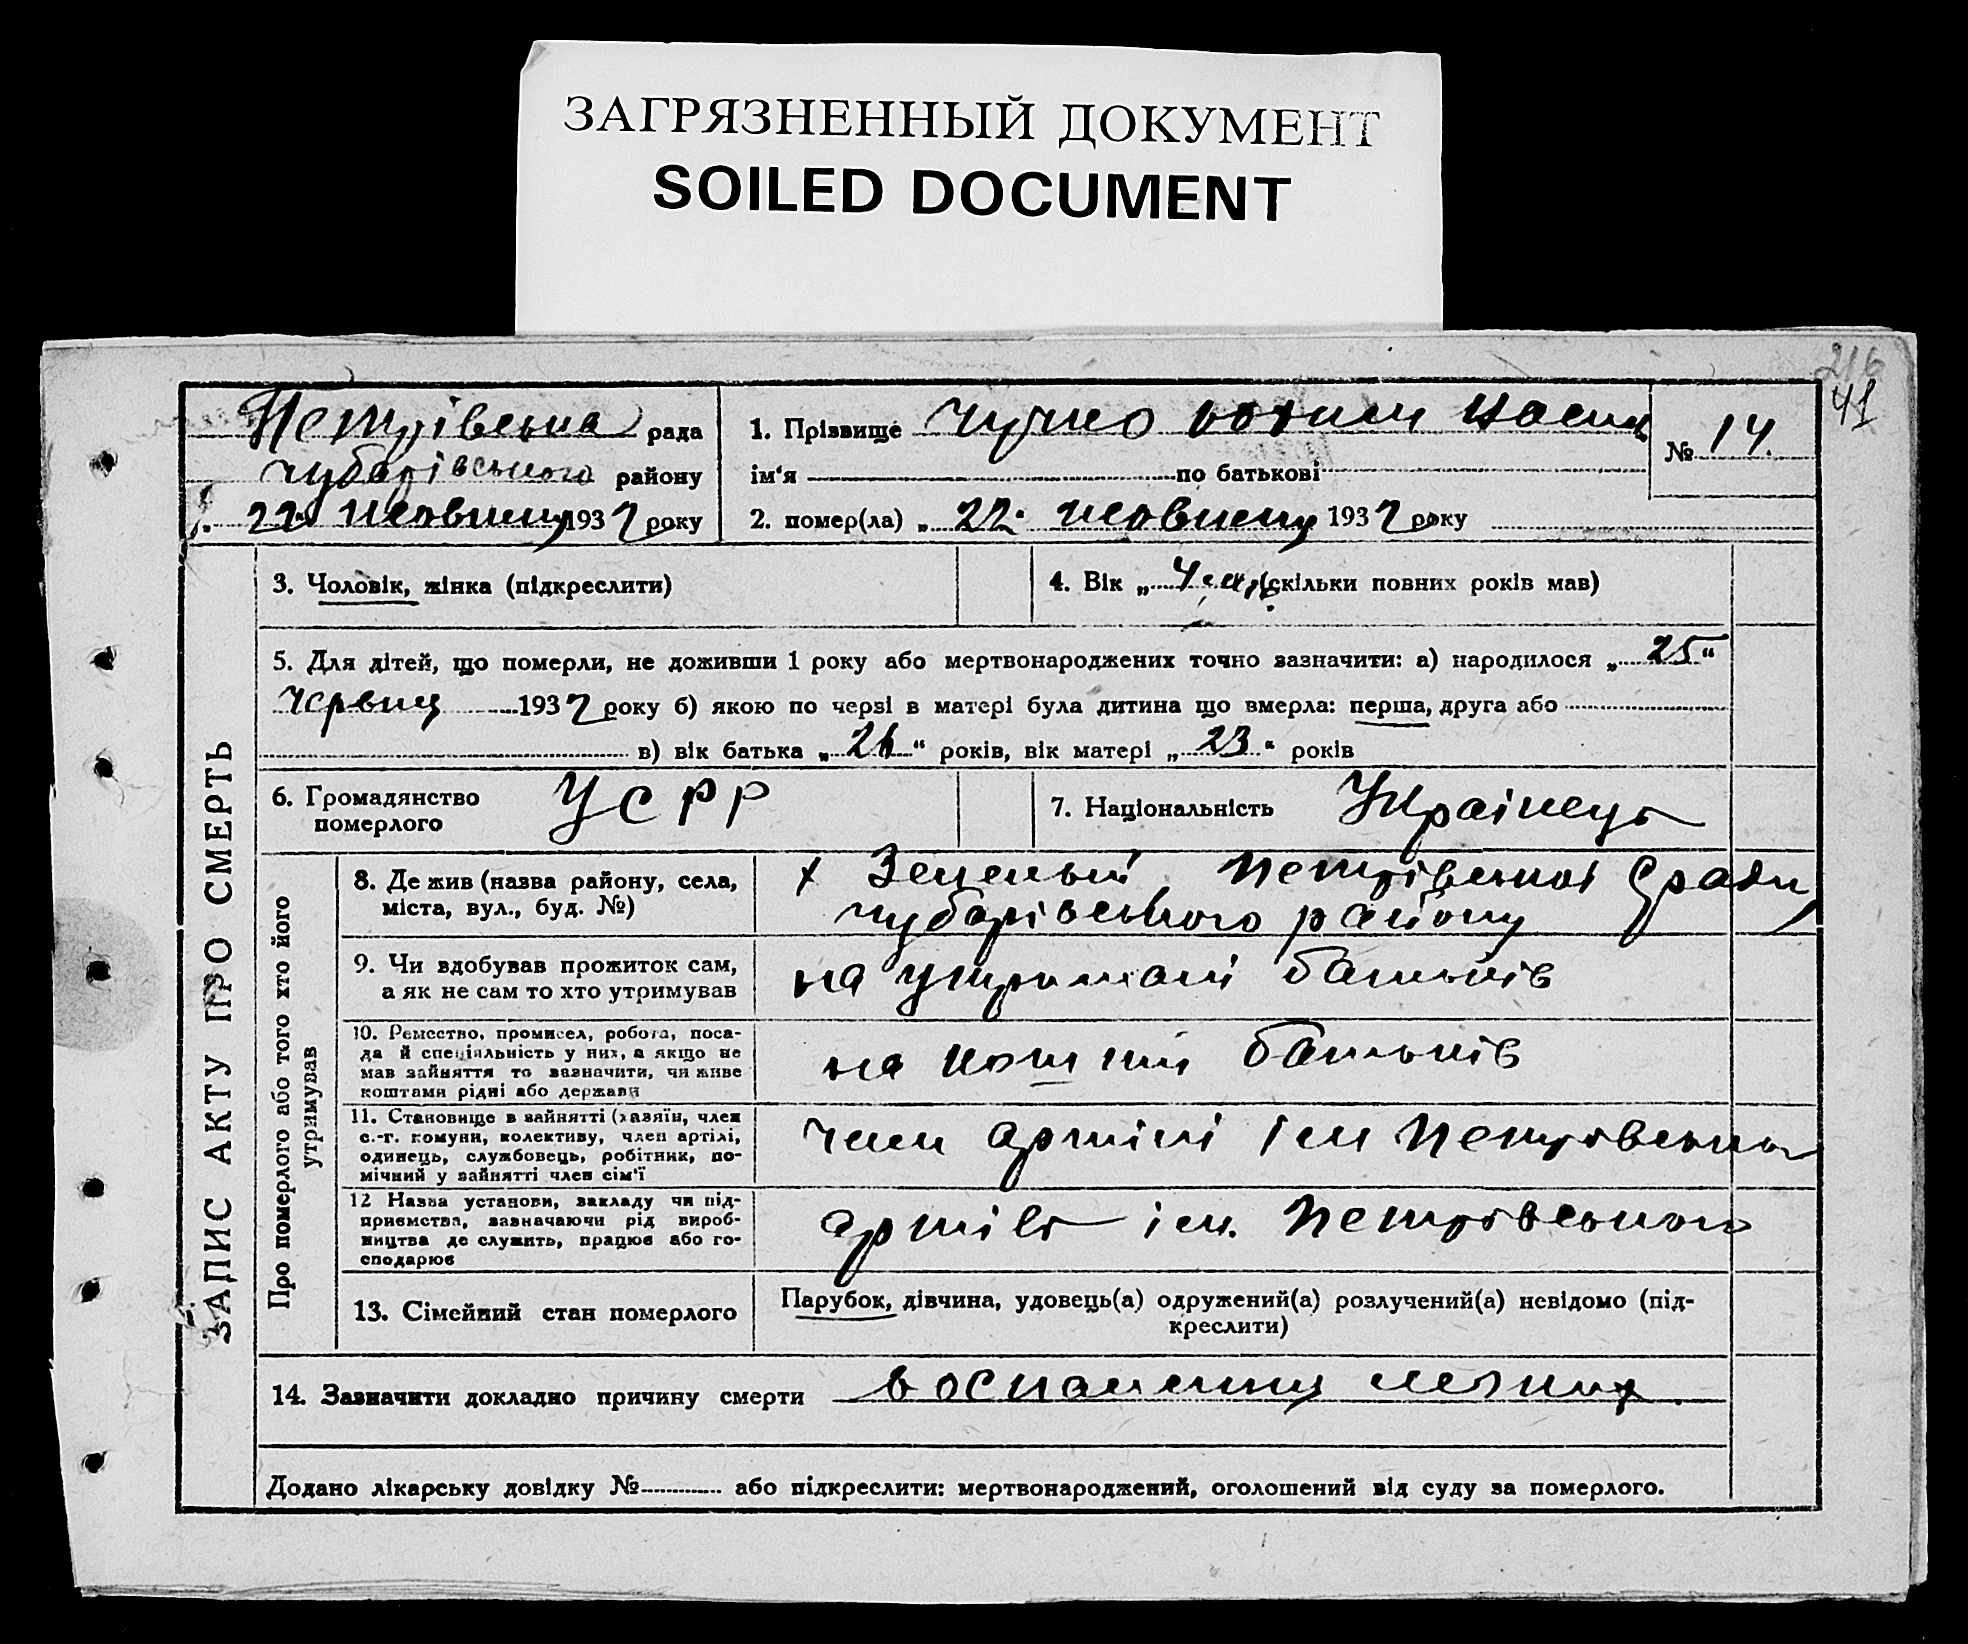 ЗАГРЯЗНЕННЫЙ ДОКУМЕНТ
SOILED DOCUMENT
216
41
Петрівська рада
чубарівського району
22 193 року
1. Прізвище
ім'я по батькові
№ 14.
2. помер(ла) „22" 193 року
ЗАПИС АКТУ ПРО СМЕРТЬ
3. Чоловік, жінка (підкреслити)
4. Вік „4 (скільки повних років мав)
5. Для дітей, що померли, не доживши 1 року або мертвонароджених точно зазначити: а) народилося „25"
червня 193 року б) якою по черзі в матері була дитина що вмерла: перша, друга або
в) вік батька „ " років, вік матері „23" років
6. Громадянство
померлого
УСРР
7. Національність Українець
Про померлого або того хто його
утримував
8. Де жив (назва району, села,
міста, вул., буд. №)
х Зеленый Петрівської с/ради
чубарівського району
9. Чи вдобував прожиток сам,
а як не сам то хто утримував
на утримані батьків
10. Ремество, промисел, робота, поса-
да й спеціяльність у них, а якщо не
мав зайняття то зазначити, чи живе
коштами рідні або держави
на кошти батьків
11. Становище в зайнятті (хазяїн, член
с.-г. комуни, колективу, член артілі,
одинець, службовець, робітник, по-
мічний у зайнятті член сім'ї
член артілі ім Петровського
12 Назва установи, закладу чи під-
приємства, зазначаючи рід вироб-
ництва де служить, працює або го-
сподарює
артіль ім. Петровського
13. Сімейний стан померлого
Парубок, дівчина, удовець(а) одружений(а) розлучений(а) невідомо (під-
креслити)
14. Зазначити докладно причину смерти
Додано лікарську довідку № або підкреслити: мертвонароджений, оголошений від суду за померлого.